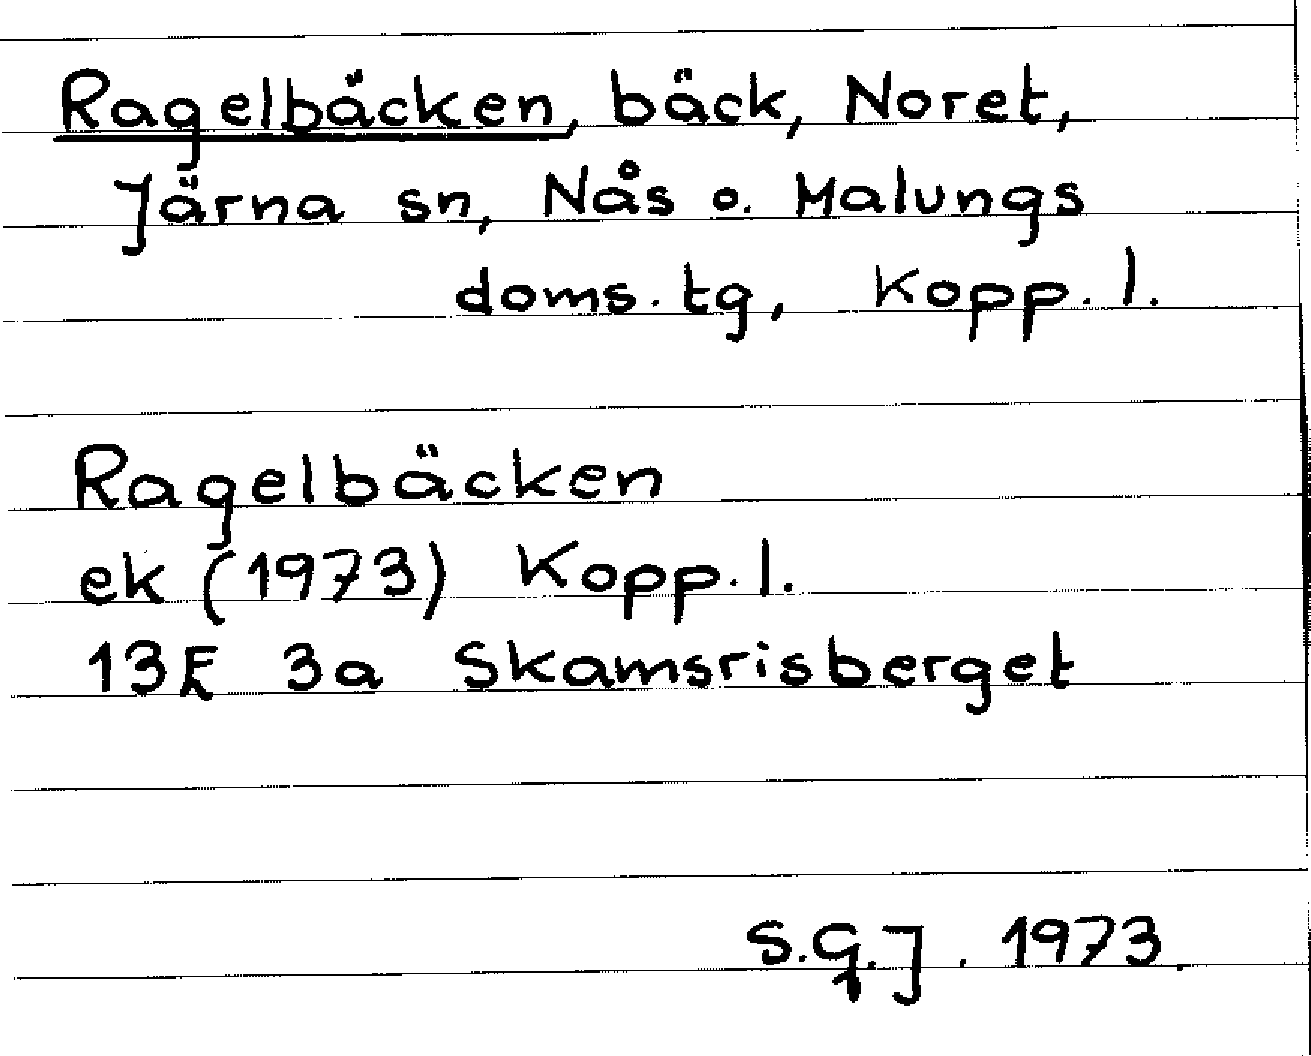 Ragelbäcken, bäck, Noret,
Järna sn, Nås o. Malungs
doms. tg, Kopp. l.
Ragelbäcken
ek (1973) Kopp. l.
13E 3a Skamsrisberget
S.G.J. 1973.